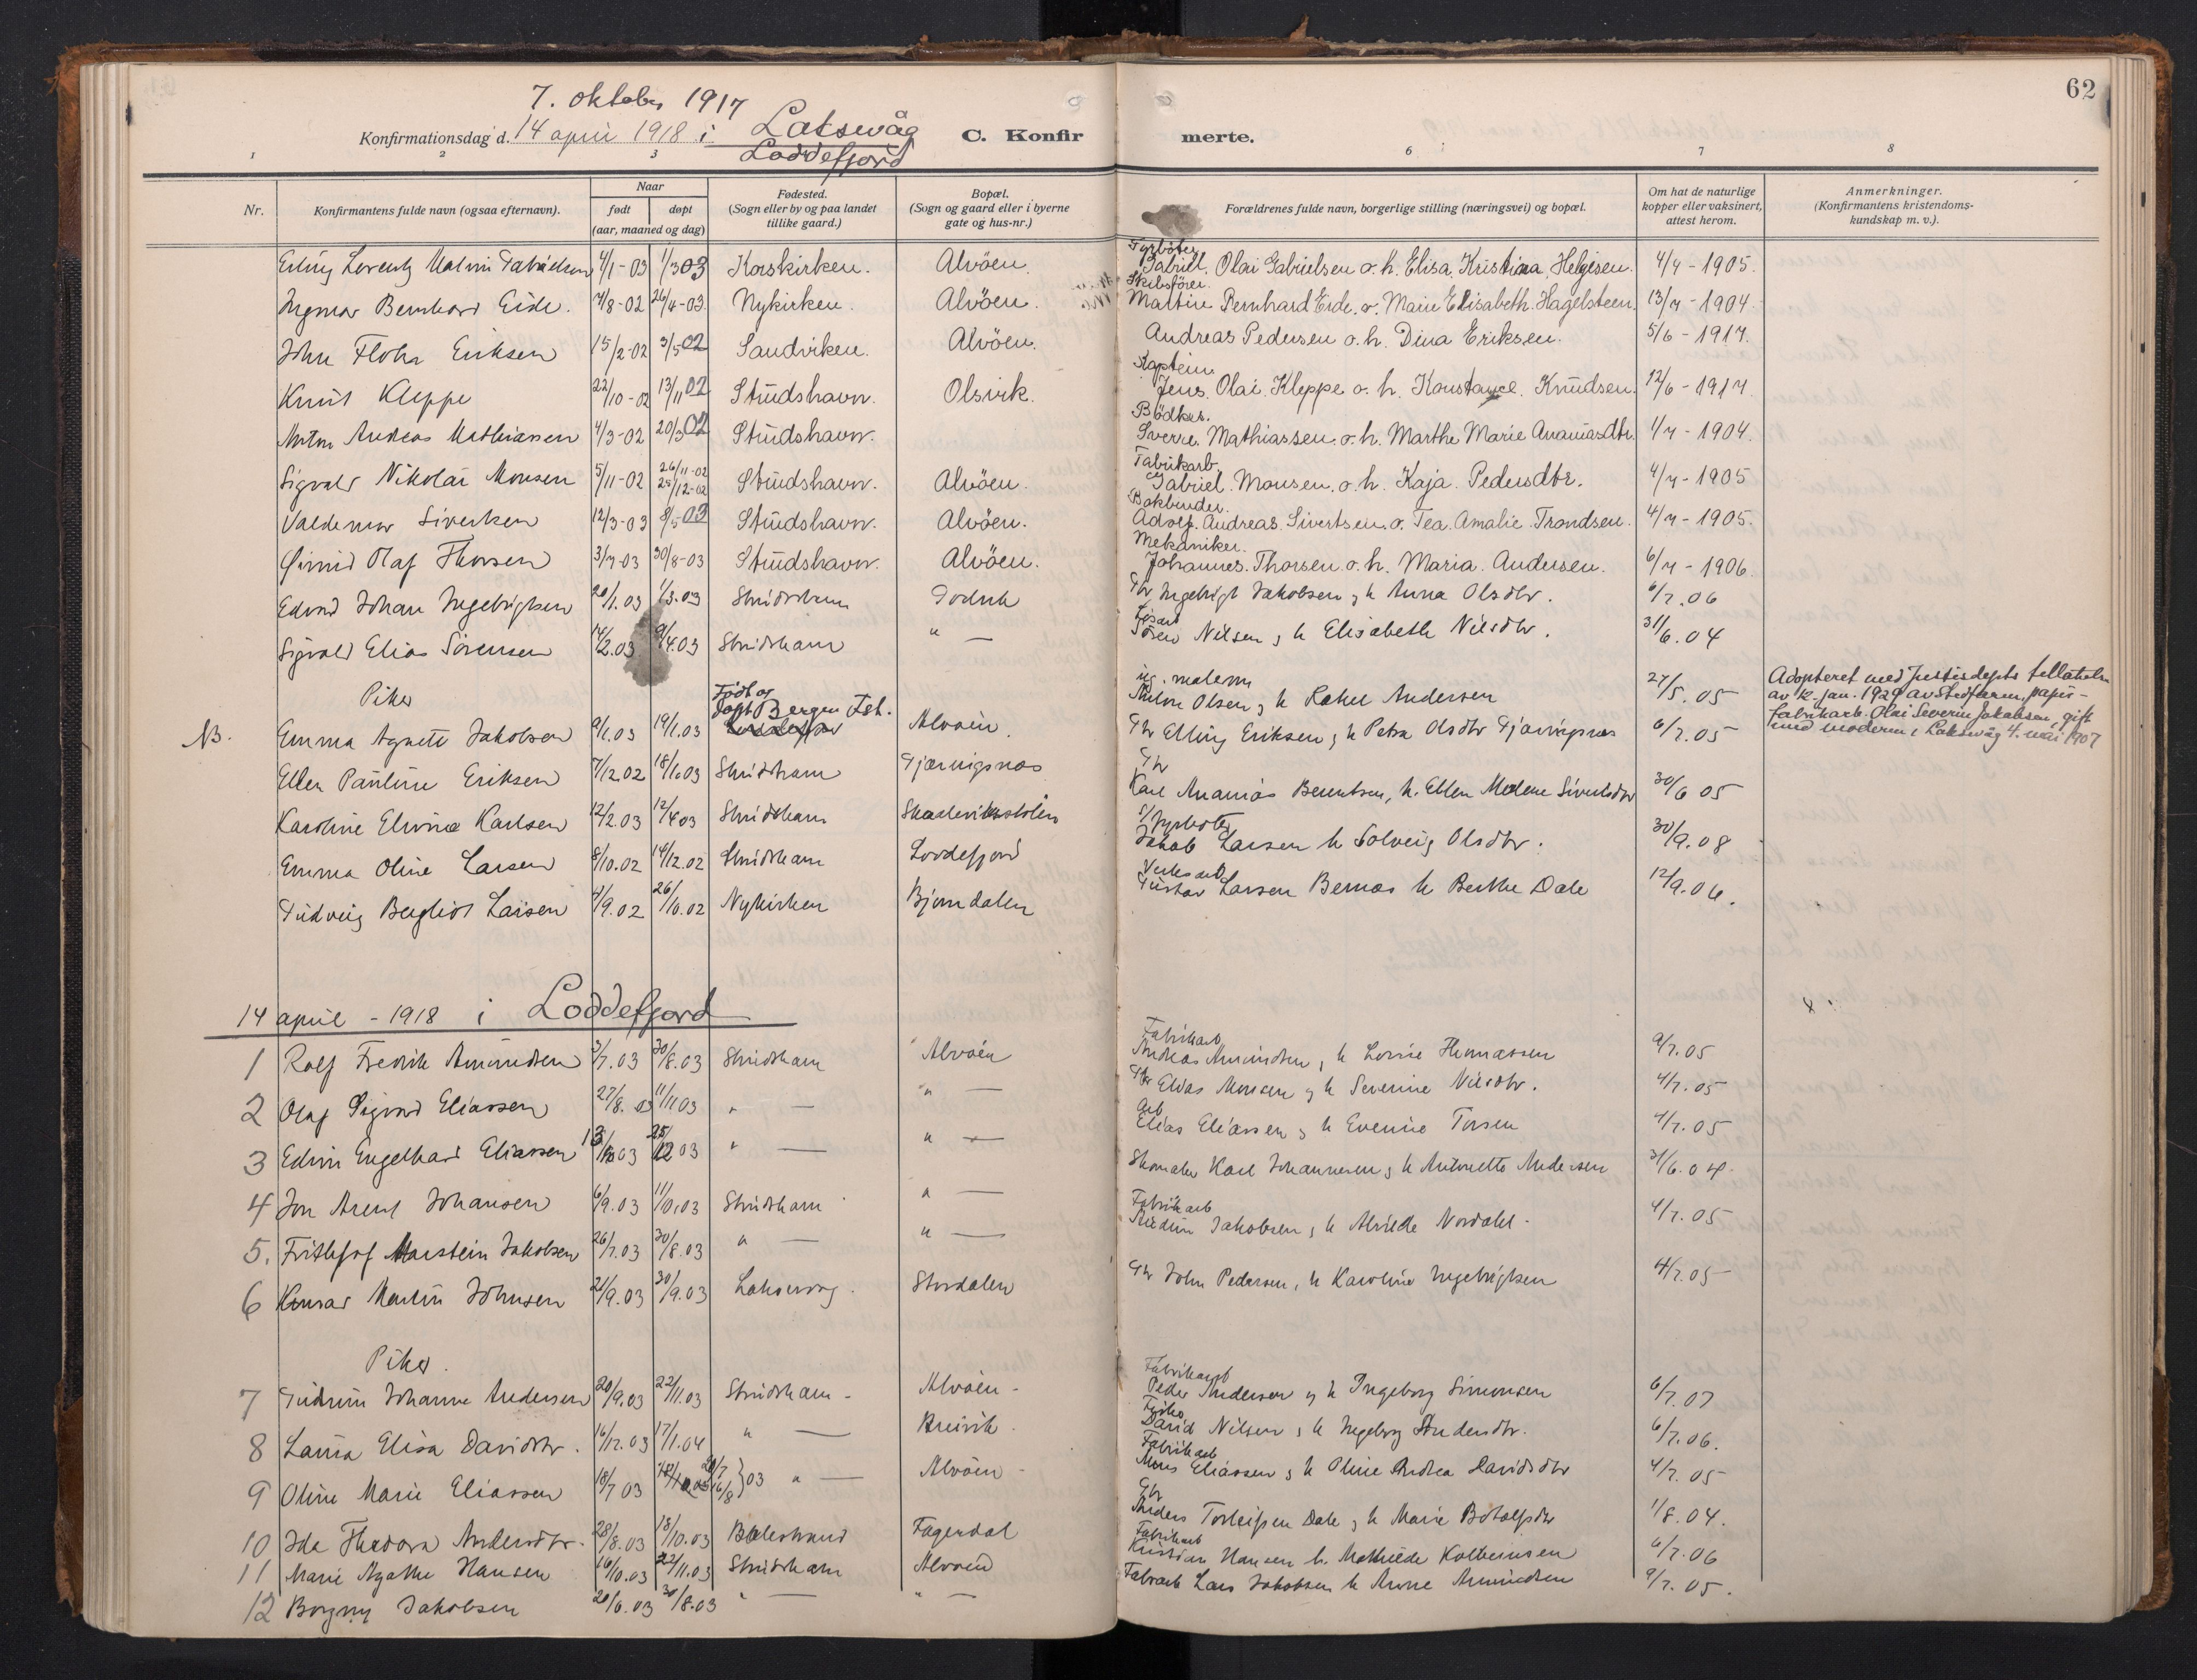 62
7. oktober 1917
Konfirmationsdag d. 14 april 1918 i Laksevåg
Loddefjord
C. Konfir merte.
1 2 3 6 7 8
Nr. Konfirmantens fulde navn (ogsaa efternavn). Naar født døpt (aar, maaned og dag) Fødested. (Sogn eller by og paa landet tillike gaard.) Bopæl. (Sogn og gaard eller i byerne gate og hus-nr.) Forældrenes fulde navn, borgerlige stilling (næringsvei) og bopæl. Om hat de naturlige kopper eller vaksinert, attest herom. Anmerkninger. (Konfirmantens kristendoms-kundskap m. v.).
Fyrböter
Erling Lorentz Malvin Gabrielsen 4/1-03 1/3 03 Korskirken. Alvöen. Gabriel Olai Gabrielsen o. h. Elisa Kristina Helgesen. 4/7-1905.
Skibsförer.
Ingmar Bernhard Eide. 7/8-02 26/4-03 Nykirken. Alvöen. Martin Bernhard Eide o. Marie Elisabeth Hagelsteen. 13/7-1904
John Flohr Eriksen 15/2-02 3/5 02 Sandviken. Alvöen. Andreas Pedersen o. h. Dina Eriksen. 5/6-1917.
Kaptein
Knut Kleppe 22/10-02 13/11 02 Strudshavn. Olsvik. Jens Olai Kleppe o. h. Konstance Knudsen. 12/6-1917.
Bödker.
Anton Andreas Mathiassen 4/3-02 20/3 02 Strudshavn. Sverre Mathiassen o. h. Marthe Marie Ananiasdtr. 1/7-1904.
Fabrikarb.
Sigvald Nikolai Monsen 5/11-02 26/11-02 25/12-02 Strudshavn. Alvöen. Gabriel Monsen o. h. Kaja Pedersdtr. 4/7-1905
Bokbinder.
Valdemar Sivertsen 12/3-03 8/5 03 Strudshavn. Alvöen. Adolf Andreas Sivertsen o. Tea Amalie Trondsen. 4/7-1905.
Mekaniker.
Øivind Olaf Thorsen 3/7-03 30/8-03 Strudshavn. Alvöen. Johannes Thorsen o. h. Maria Andersen. 6/7-1906.
Edvard Johan Ingebrigtsen 20/1.03 1/3.03 Strudshavn Godvik Gbr Ingebrigt Jakobsen og h Anna Olsdtr. 6/7.06
Løsarb
Sigvald Elias Sørensen 14/2.03 9/4.03 Strudshavn " — Søren Nilsen og h Elisabeth Nilsdtr. 31/6.04
Piker
Født og døpt Bergen Fst.
NB. Emma Agnete Jakobsen 9/1.03 19/1.03 Alvøen Olsen og h Rakel Andersen 27/5.05
Adopteret med Justisdepts tillatelse
av 12. jan. 1929 av stedfaren, papir-
fabrikarb. Olai Severin Jakobsen, gift
med moderen i Laksevåg 4. mai 1907
Ellen Pauline Eriksen 7/12.02 18/1.03 Strudshavn Gjæringsnes Gbr Elling Eriksen og h Petra Olsdtr Gjæringsnes 6/7.05
Gbr
Karoline Elvine Karlsen 12/2.03 12/4 03 Strudshavn Karl Ananias Berentsen, h. Ellen Malene Sivertsdtr 30/6 05
Fyrbøter
Emma Oline Larsen 8/10.02 14/12.02 Strudshavn Loddefjord Jakob Larsen h Solveig Olsdtr. 30/9.08
Verksarb
Gudveig Bergliot Larsen 4/9.02 26/10.02 Nykirken Bjørndalen Gustav Larsen Bernas h Berthe Dale 12/9.06.
14 april - 1918 i Loddefjord
Fabrikarb
1 Rolf Fredrik Amundsen 3/7.03 30/8.03 Strudshavn Alvøen Andreas Amundsen, h Lovise Thomassen 9/7.05
2 Olaf Sigvard Eliassen 27/8.03 1/11 03 " — " — Gbr Elias Monsen og h Severine Nilsdtr. 4/7.05
Arb
3 Edvin Engelhard Eliassen 13/10 03 25/12 03 " — " — Elias Eliassen og h Evenine Torsen 4/7.05
4 Jon Arent Johansen 6/9.03 11/10.03 Strudshavn " — Skomaker Karl Johannesen og h Antonette Andersen 31/6.04.
Fabrikarb
5. Frithjof Marstein Jakobsen 26/7.03 30/8.03 " — " — Jakobsen, h Alvilde Nordahl. 4/7.05
6 Konrad Martin Johnsen 21/9.03 30/9.03 Laksevaag. Stordalen Gbr John Pedersen, h Karoline Ingebrigtsen 4/7.05
Piker.
Fabrikarb
7 Gudrun Johanne Andersen 20/9.03 22/11.03 Strudshavn - Alvøen - Peder Andersen og h Ingeborg Simonsen 6/7.07
Fisker
8 Laura Elisa Davidsdtr. 16/12.03 17/1.04 " — Breivik. David Nilsen og h Ingeborg Andersdtr. 6/7.06.
Fabrikarb
9 Oline Marie Eliassen 18/7 03 20/7 16/8 } 03 " — Alvøen - Mons Eliassen og h Oline Andrea Davidsdtr 4/7.05
Gbr
10 Ida Theodora Andersdtr. 28/8.03 18/10.03 Balestrand Fagerdal Anders Torleifsen Dale og h Marie Botolfsdtr 1/8.04.
Fabrikarb
11 Marie Agathe Hansen 16/10.03 22/11.03 Strudshavn Alvøen Kristian Hansen h. Mathilde Kolbeinsen 6/7.06
12 Borgny Jakobsen 20/6.03 30/8.03 " — " — Fabrarb Lars Jakobsen h Anne Amundsen 9/7.05.